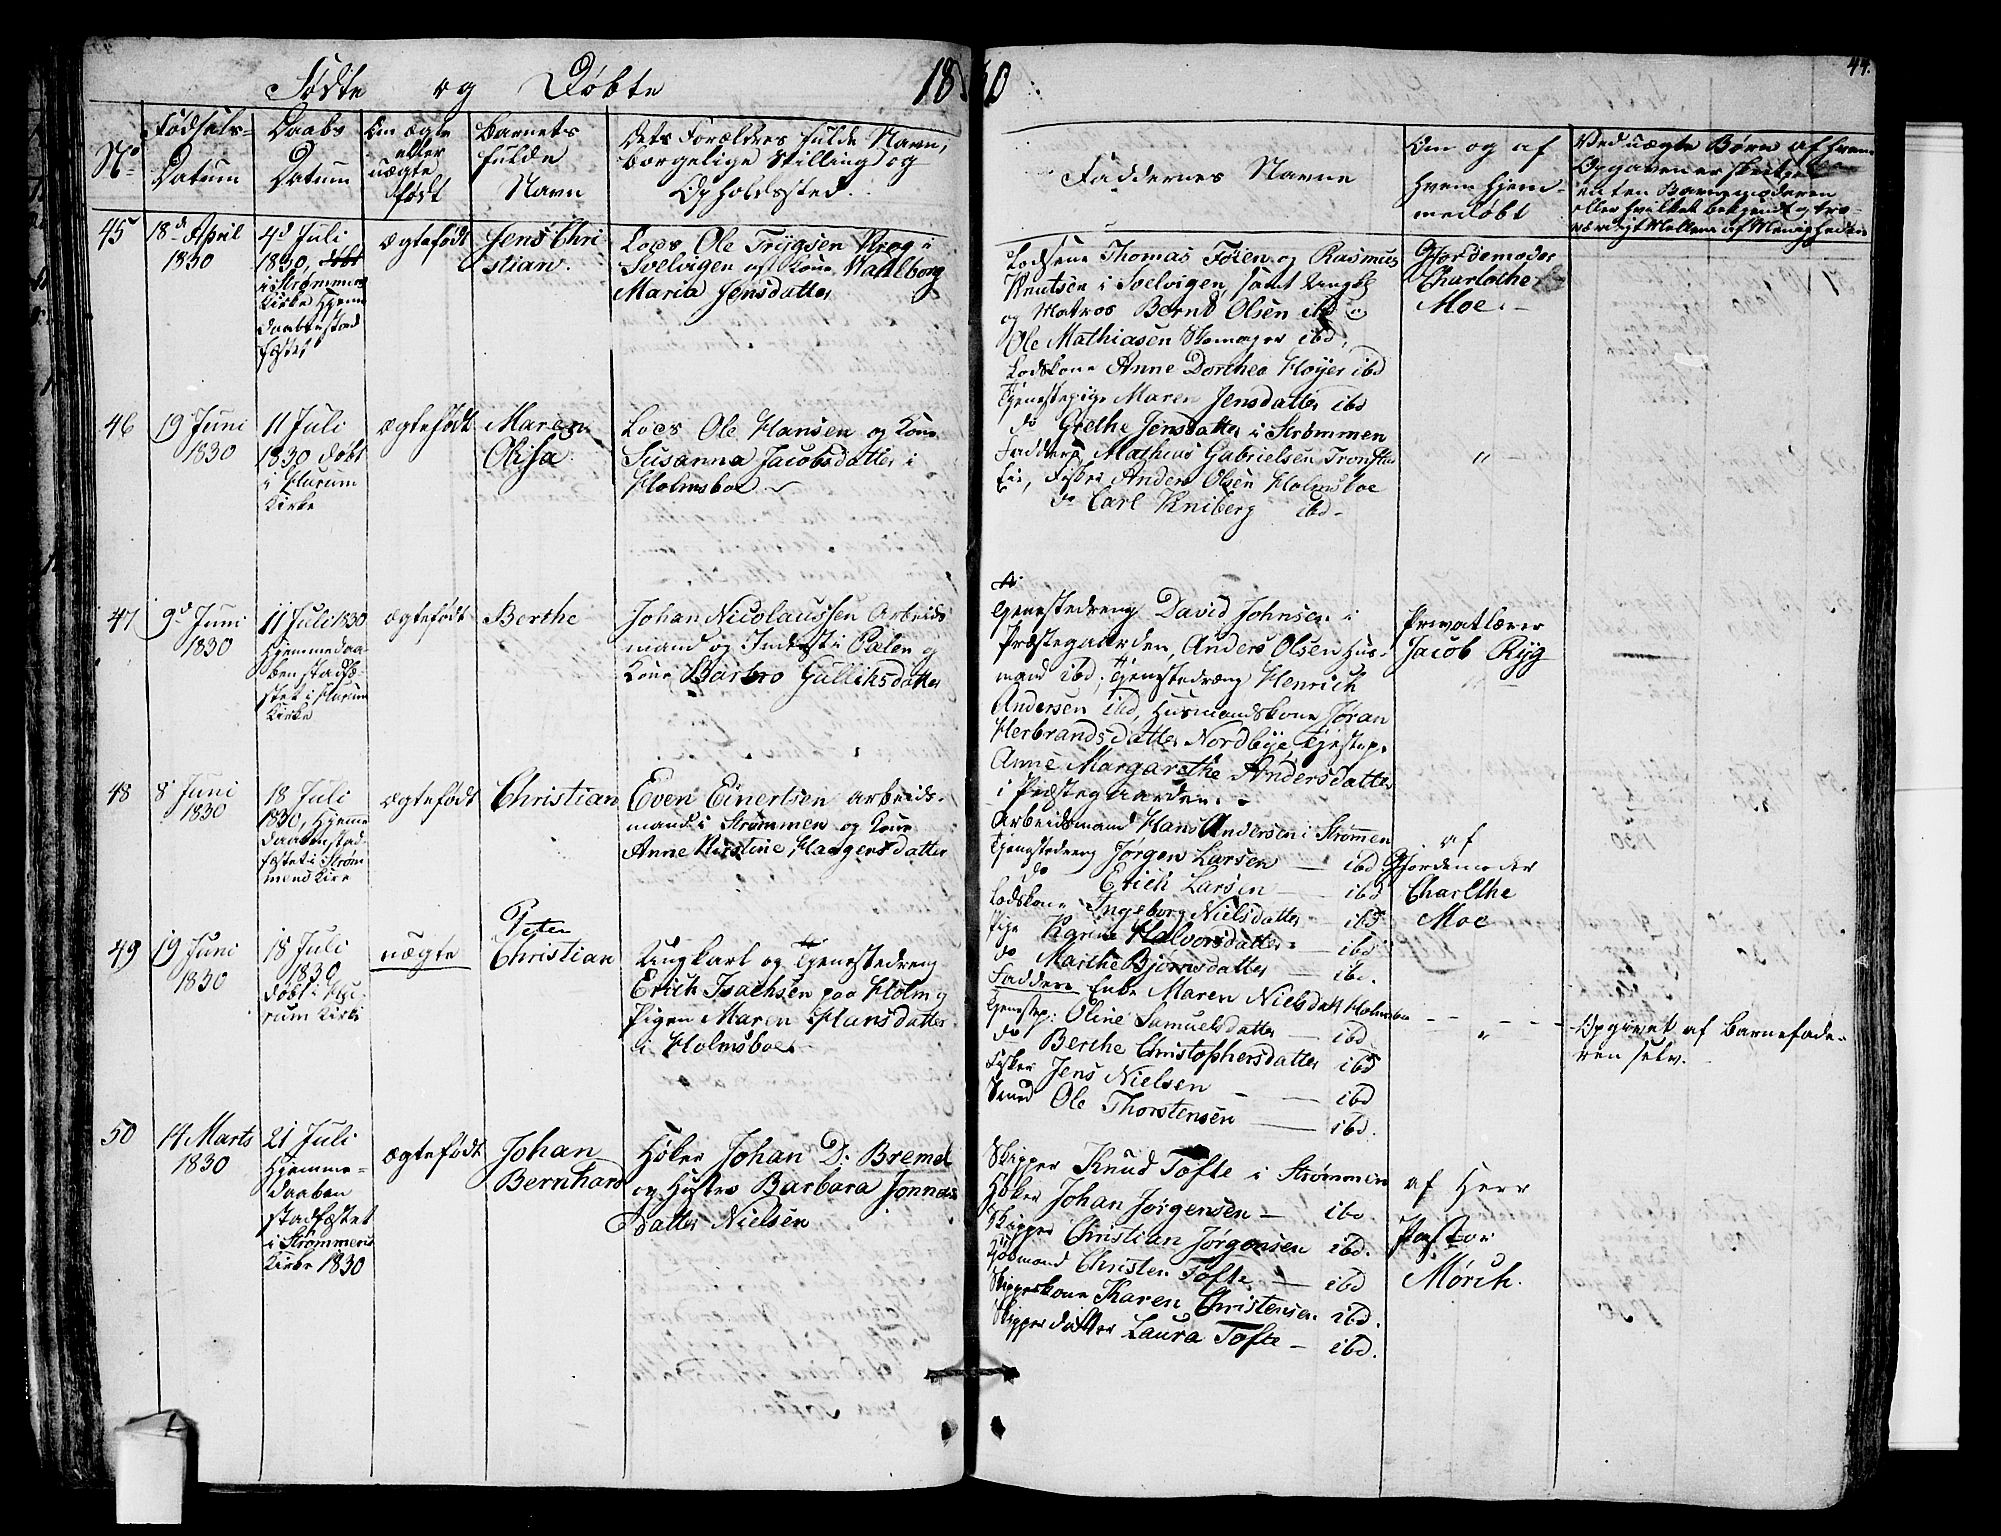 Fødte og Døbte 1830
44.
No
Fødsels-
Datum
Daabs
Datum
Om ægte
eller
uægte
født
Barnets
fulde
Navn
Dets Forældres fulde Navn,
borgelige Stilling og
Opholdssted.
Faddernes Navne
Om og af
hvem hjem-
medøbt
Ved uægte Børn af hvem
Opgaven er skeet
enten Barnemoderen
eller hvilket bekjendt og tro-
værdigt Mellem af Menigheden
45
18d April
1830
4d Juli
1830, døbt
i Strømmens
Kirke Hjem
daaben stad
fæstet
ægtefødt
Jens Chri
stian.
Lods Ole Trygsen Krog i
Svelvigen og Kone Wahlborg
Maria Jensdatter
Lodsene Thomas Føien og Rasmus
Knutsen i Svelvigen, samt Ungkl
og Matros Bernt Olsen ibd
Ole Mathiasen Skomager ibd,
Lodskone Anne Dorthea Høyer ibd
Tjenestepige Maren Jensdatter ibd
do Grethe Jensdatter i Strømmen
Gjordemoder
Charlothe
Moe.
46
19 Juni
1830
11 Juli
1830 døbt
i Hurum
Kirke
ægtefødt
Maren
Olisa
Lods Ole Hansen og Kone
Susanna Jacobsdatter i
Holmsboe
Faddere Mathius Gabrielsen Tronstad
Eie, Fisker Anders Olsen Holmsboe
do Carl Kniberg ibd
"
47
9d Juni
1830
11 Juli 1830
Hjemmedaa
ben stadfæ-
stet i Hurum
Kirke
ægtefødt
Berthe
Johan Nicolaussen Arbeids
mand og Inderst i Palen og
Kone Barbro Gulliksdatter
Tjenestedreng David Johnsen i
Præstegaarden, Anders Olsen Hus-
mand ibd, Tjenestedreng Henrich
Andersen ibd, Husmandskone Jøran
Herbrandsdatter Nordbye, Tjestep.
Anne Margarethe Andersdatter
i Præstegaarden.
Privatlærer
Jacob Ryg
48
8 Juni
1830
18 Juli
1830, Hjemme
daaben stad-
fæstet i Strøm
mens Kirke
ægtefødt
Christian
Even Einertsen arbeids-
mand i Strømmen og Kone
Anne Kirstine Haagensdatter
Arbeidsmand Hans Andersen i Strømmen
Tjenestedreng Jørgen Larsen — ibd
do Erich Larsen — ibd
Lodskone Ingeborg Nielsdatter — ibd
Pige Karine Halvorsdatter — ibd
do Marthe Bjørnsdatter — ibd.
af
Gjordemoder
Charlthe
Moe
49
19 Juni
1830
18 Juli
1830
døbt i Hu-
rum Kirke
uægte
Peter
Christian
Ungkarl og Tjenestedreng
Erich Isachsen paa Holm og
Pigen Maren Hansdatter
i Holmsboe
Faddere Enke Maren Nielsdatt Holmsboe
Tjenestep: Oline Samuelsdatter — ibd
do Berthe Christophersdatter ibd
Fisker Jens Nielsen — ibd
Smed Ole Thorstensen — ibd.
"
Opgivet af Barnefade-
ren selv.
50
14 Marts
1830
21 Juli
Hjemme-
daaben
stadfæstet
i Strømmens
Kirke 1830
ægtefødt
Johan
Bernhard
Høker Johan D. Bremel
og Hustro Barbara Jonnas
Datter Nielsen
Skipper Knud Tofte i Strømmen
Høker Johan Jørgensen — ibd.
Skipper Christian Jørgensen ibd.
Kjøbmand Christen Tofte — ibd
Skipperkone Karen Christensen ibd.
Skipperdatter Laura Tofte — ibd.
af Herr
Pastor
Mørch.